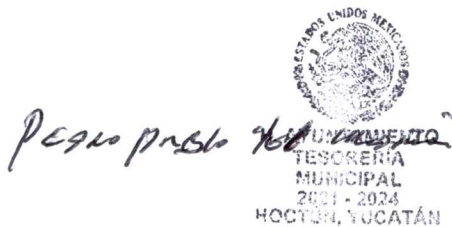 ESTADOS UNIDOS MEXICANOS
Pedro Pablo
AYUNTAMIENTO
TESORERÍA
MUNICIPAL
2021 - 2024
HOCTÚN, YUCATÁN